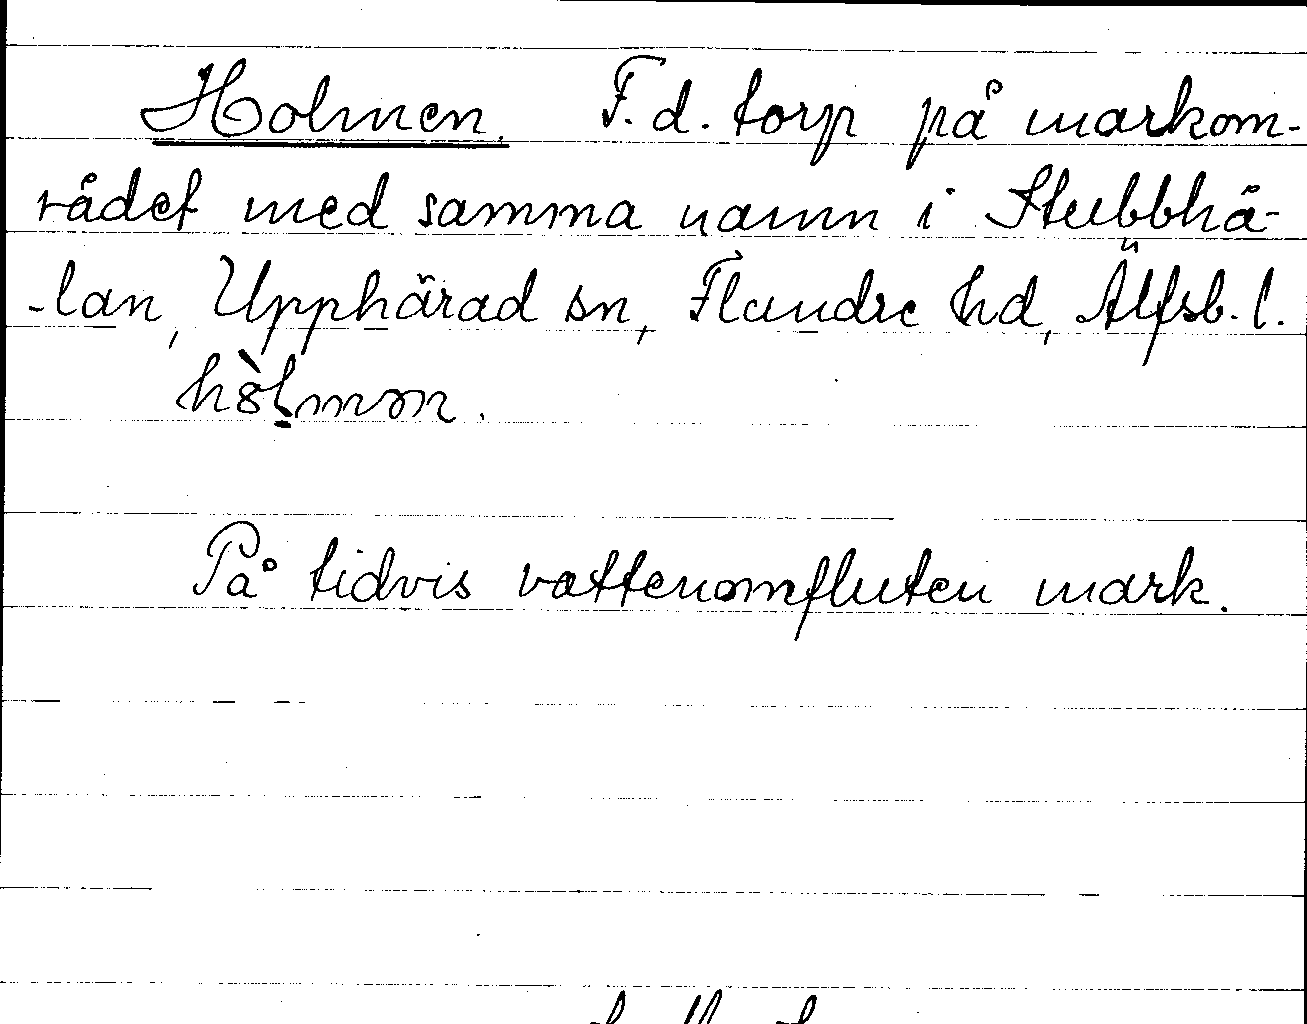 Holmen. F.d. torp på markom-
rådet med samma namn i Stubbhä-
-lan, Upphärad sn, Flundre hd, Älfsb. l.
På tidvis vattenomfluten mark.